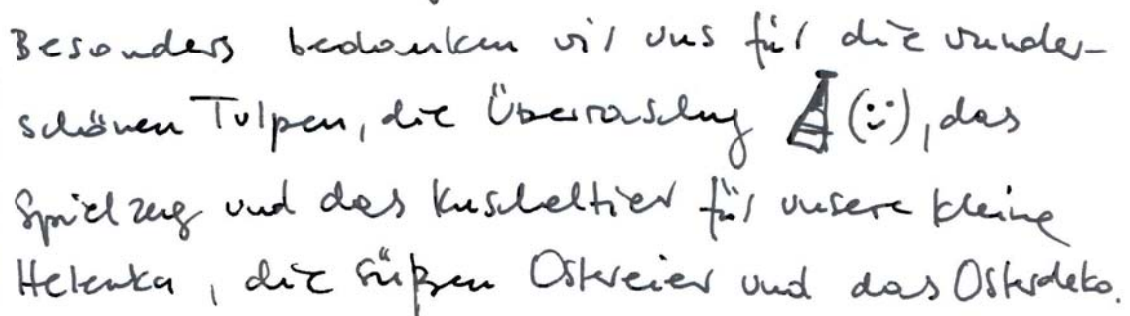 Besonders bedanken wir uns für die wunder-
schönen Tulpen, die Überraschung (:), das
Spielzeug und das Kuscheltier für unsere kleine
Helenka, die süßen Ostereier und das Osterdeko.